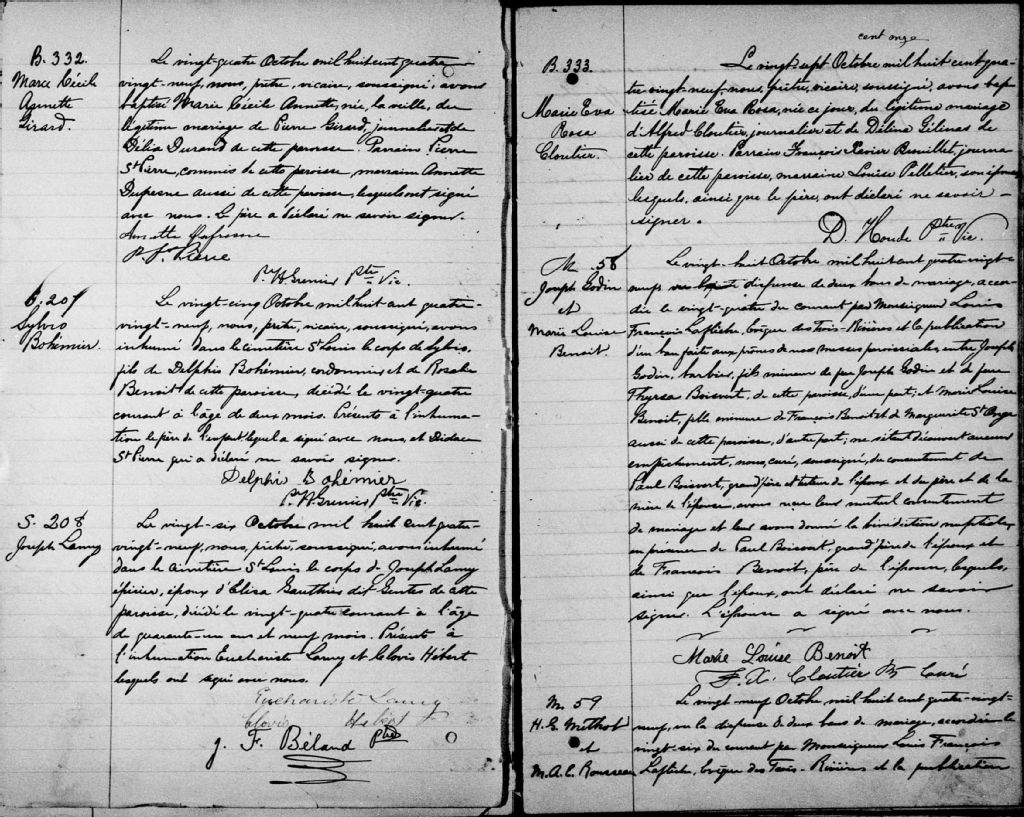 B. 332.
Marie Cécile
Annette
Girard.
Le vingt-quatre Octobre mil huit cent quatre
vingt-neuf, nous, prêtre, vicaire, soussigné, avons
baptisé Marie Cécile Annette, née, la veille, du
légitime mariage de Pierre Girard, journalier et de
Délia Durand de cette paroisse. Parrain Pierre
St Pierre, commis de cette paroisse, marraine Annette
Dufresne aussi de cette paroisse, lesquels ont signé
avec nous. Le père a déclaré ne savoir signer.
Annette Dufresne
P. St. Pierre
Ptre Vic.
S. 207
Sylvio
Bohémier.
Le vingt-cinq Octobre mil huit cent quatre-
vingt-neuf, nous, prêtre, vicaire, soussigné, avons
inhumé dans le cimetière St Louis le corps de Sylvio,
fils de Delphis Bohémier, cordonnier, et de Rosalie
Benoit de cette paroisse, décédé le vingt-quatre
courant à l'âge de deux mois. Présents à l'inhuma-
tion le père de l'enfant lequel a signé avec nous, et Didace
St Pierre qui a déclaré ne savoir signer.
Delphis Bohémier
Ptre Vic.
S. 208
Joseph Lamy
Le vingt-six Octobre mil huit cent quatre-
vingt-neuf, nous, prêtre, soussigné, avons inhumé
dans le cimetière St Louis le corps de Joseph Lamy
épicier, époux d'Elisa Gauthier dit Gentes de cette
paroisse, décédé le vingt-quatre courant à l'âge
de quarante-un ans et neuf mois. Présents à
l'inhumation Euchariste Lamy et Clovis Hébert
lesquels ont signé avec nous.
Euchariste Lamy
Clovis Hébert
J. F. Béland Ptre
cent onze
B. 333.
Marie Eva
Rosa
Cloutier.
Le vingt-sept Octobre mil huit cent qua-
tre-vingt-neuf nous, prêtre, vicaire, soussigné, avons bap-
tisé Marie Eva Rosa, née ce jour, du légitime mariage
d'Alfred Cloutier, journalier et de Délina Gélinas de
cette paroisse. Parrain François Xavier journa-
lier de cette paroisse, marraine Louise Pelletier, son épouse
lesquels, ainsi que le père, ont déclaré ne savoir
signer.
D. Houde Ptre Vic.
M. 58
Joseph Godin
et
Marie Louise
Benoit.
Le vingt-huit Octobre mil huit cent quatre vingt-
neuf, vu la dispense de deux bans de mariage, accor-
dée le vingt-quatre du courant par Monseigneur Louis
François Laflèche, évêque des Trois-Rivières et la publication
d'un ban faite aux prônes de nos messes paroissiales, entre Joseph
Godin, barbier, fils mineur de feu Joseph Godin et de feue
Thyrsa Boisvert, de cette paroisse, d'une part; et Marie Louise
Benoit, fille mineure de François Benoit et de Marguerite St Onge
aussi de cette paroisse, d'autre part; ne s'étant découvert aucun
empêchement, nous, curé, soussigné, du consentement de
Paul Boisvert, grand'père et tuteur de l'époux et du père et de la
mère de l'épouse, avons reçu leur mutuel consentement
de mariage et leur avons donné la bénédiction nuptiale,
en présence de Paul Boisvert, grand'père de l'époux et
de François Benoit, père de l'épouse, lesquels,
ainsi que l'époux, ont déclaré ne savoir
signer. L'épouse a signé avec nous.
Marie Louise Benoit
F. X. Cloutier Ptre Curé
M. 59
H. E. Methot
et
M. A. C. Rousseau
Le vingt-neuf Octobre, mil huit cent quatre-vingt-
neuf, vu la dispense de deux bans de mariage, accordée le
vingt-six du courant par Monseigneur Louis François
Laflèche, évêque des Trois-Rivières et la publication